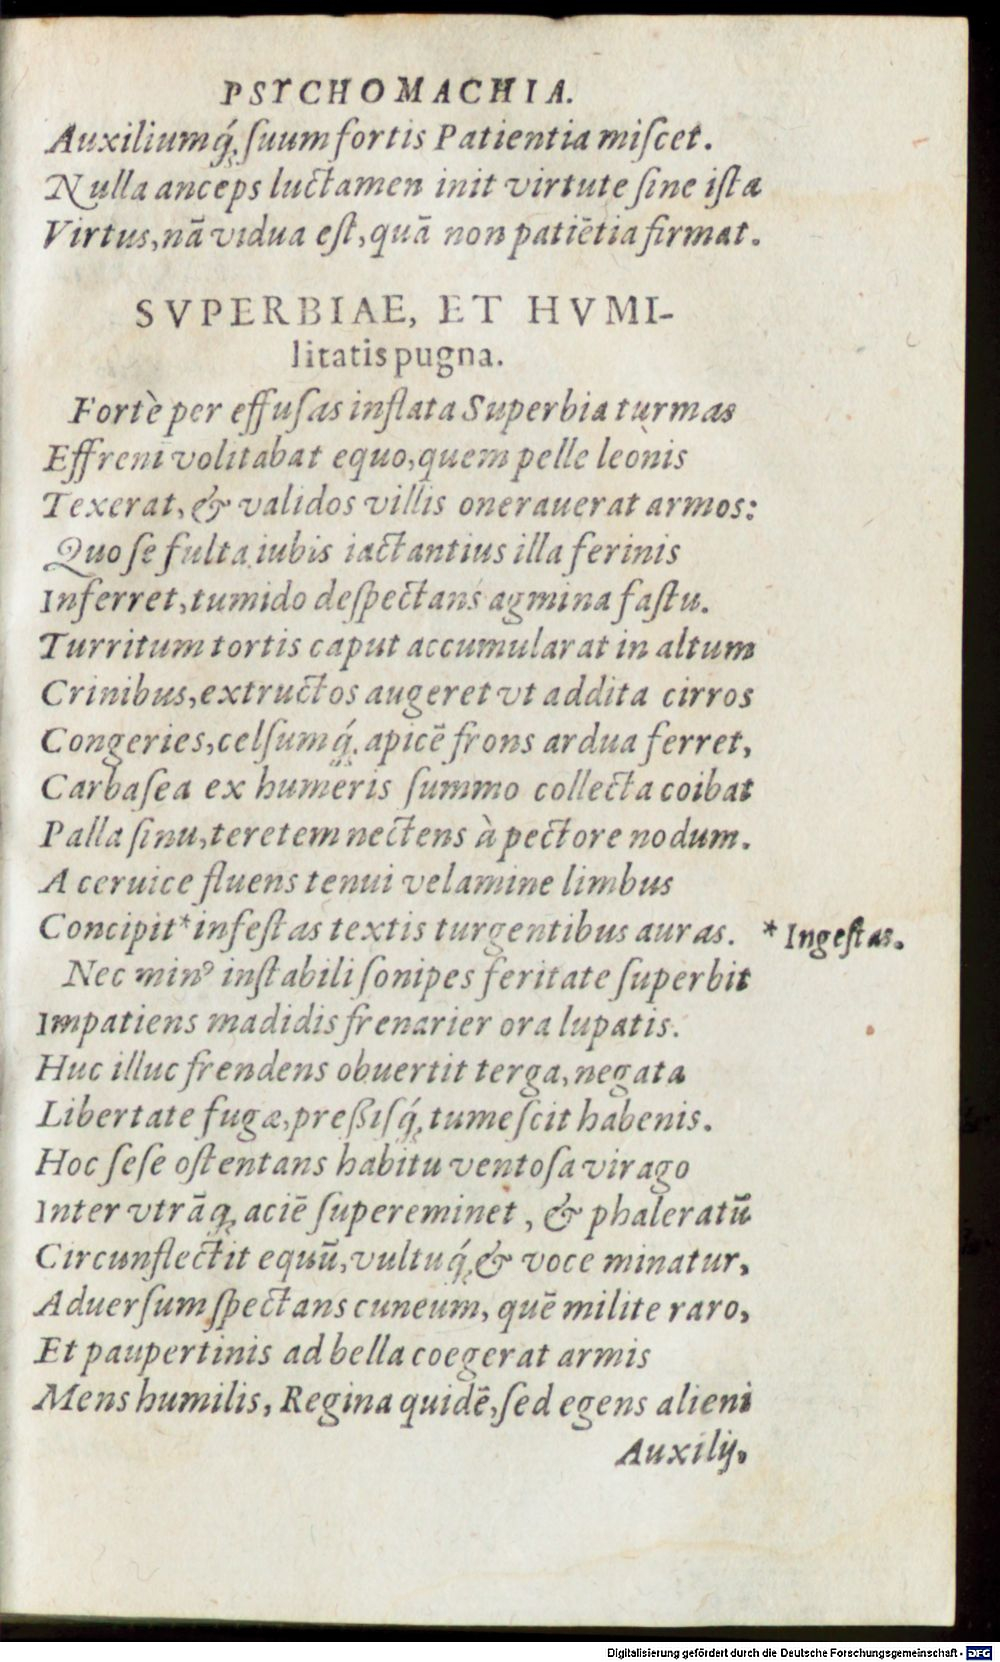 PSYCHOMACHIA.
Auxiliumq́; ſuum fortis Patientia miſcet.
Nulla anceps luctamen init virtute ſine iſta
Virtus, nã vidua eſt, quã non patiẽtia firmat.
SVPERBIAE, ET HVMI-
litatis pugna.
Fortè per effuſas inflata Superbia turmas
Effreni volitabat equo, quem pelle leonis
Texerat, & validos villis onerauerat armos:
Quo ſe fulta iubis iactantius illa ferinis
Inferret, tumido deſpectans agmina faſtu.
Turritum tortis caput accumularat in altum
Crinibus, extructos augeret vt addita cirros
Congeries, celſumq́; apicẽ frons ardua ferret,
Carbaſea ex humeris ſummo collecta coibat
Palla ſinu, teretem nectens à pectore nodum.
A ceruice fluens tenui velamine limbus
Concipit * infeſtas textis turgentibus auras. * Ingeſtas.
Nec minꝰ inſtabili ſonipes feritate ſuperbit
Impatiens madidis frenarier ora lupatis.
Huc illuc frendens obuertit terga, negata
Libertate fugæ, preßiſq́; tumeſcit habenis.
Hoc ſeſe oſtentans habitu ventoſa virago
Inter vtrãq; aciẽ ſupereminet, & phaleratũ
Circunflectit equũ, vultuq́; & voce minatur,
Aduerſum ſpectans cuneum, quẽ milite raro,
Et paupertinis ad bella coegerat armis
Mens humilis, Regina quidẽ, ſed egens alieni
Auxilij.
Digitalisierung gefördert durch die Deutsche Forschungsgemeinschaft - DFG